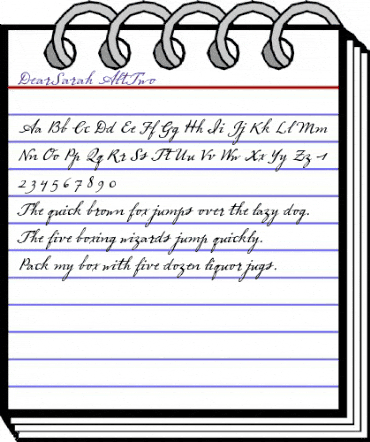 DearSarah AltTwo
Aa Bb Cc Dd Ee Ff Gg Hh Ii Jj Kk Ll Mm
Nn Oo Pp Qq Rr Ss Tt Uu Vv Ww Xx Yy Zz 1
2 3 4 5 6 7 8 9 0
The quick brown fox jumps over the lazy dog.
The five boxing wizards jump quickly.
Pack my box with five dozen liquor jugs.